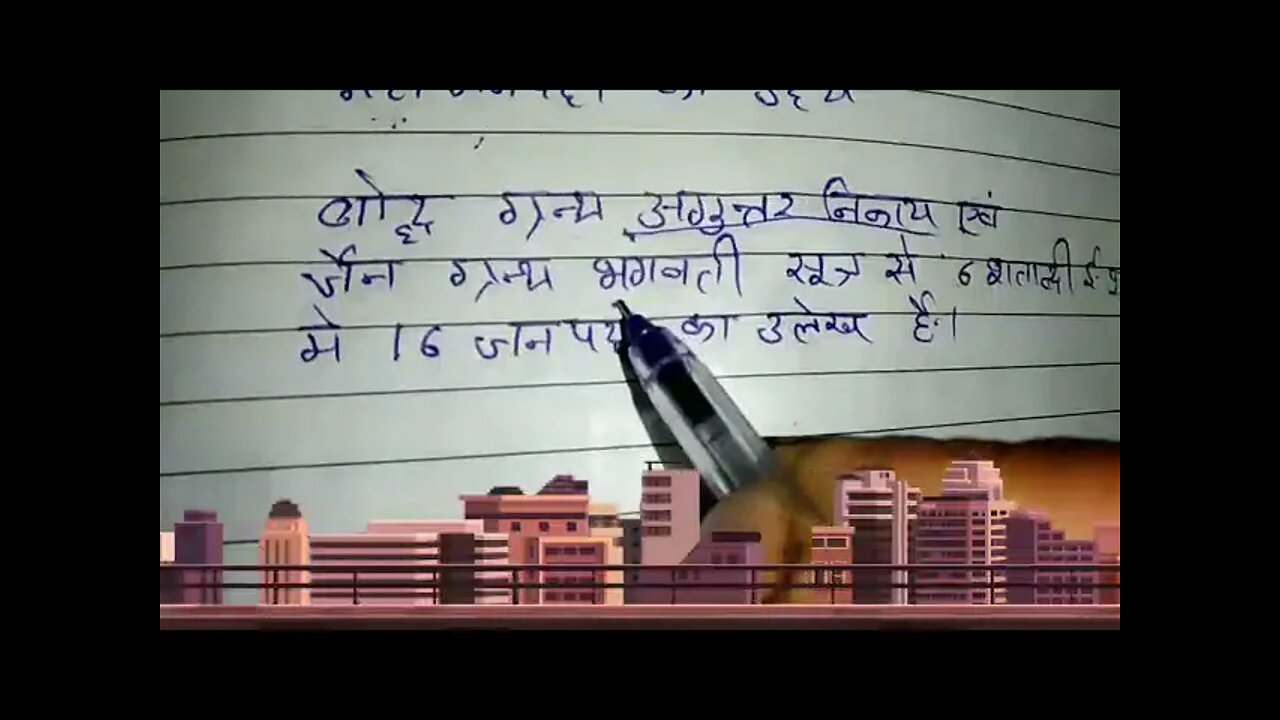 का उदय
बोद्ध ग्रन्थ अगुत्तर निकाय एवं
जैन ग्रन्थ भगवती सूत्र से 6 शताब्दी ई.पू
मे 16 जनपद का उलेख है।